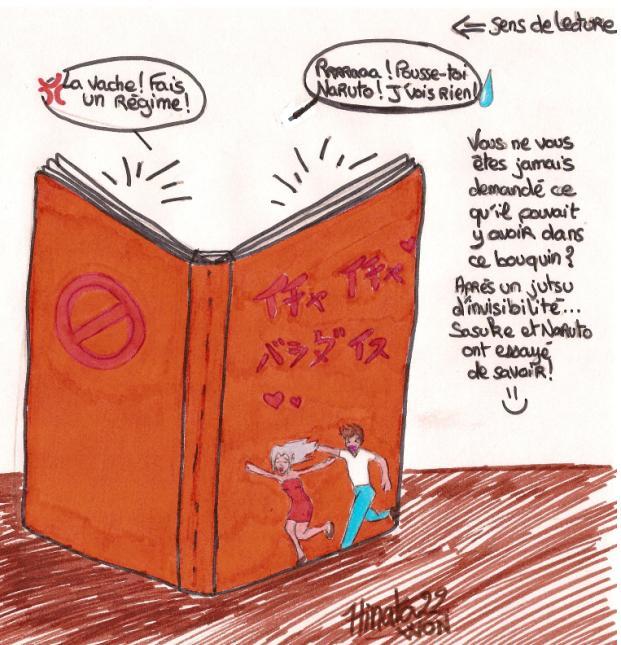 ⇐ Sens de lecture
PRRRaaa ! Pousse-toi
NaRuto ! J'vois Rien !
La vache ! Fais
un Régime !
Vous ne vous
êtes jamais
demandé ce
qu'il pouvait
y avoir dans
ce bouquin ?
Après un jutsu
d'invisibilité...
Sasuke et Naruto
ont essayé
de savoir !
イチャ イチャ
パラダイス
Hinata22